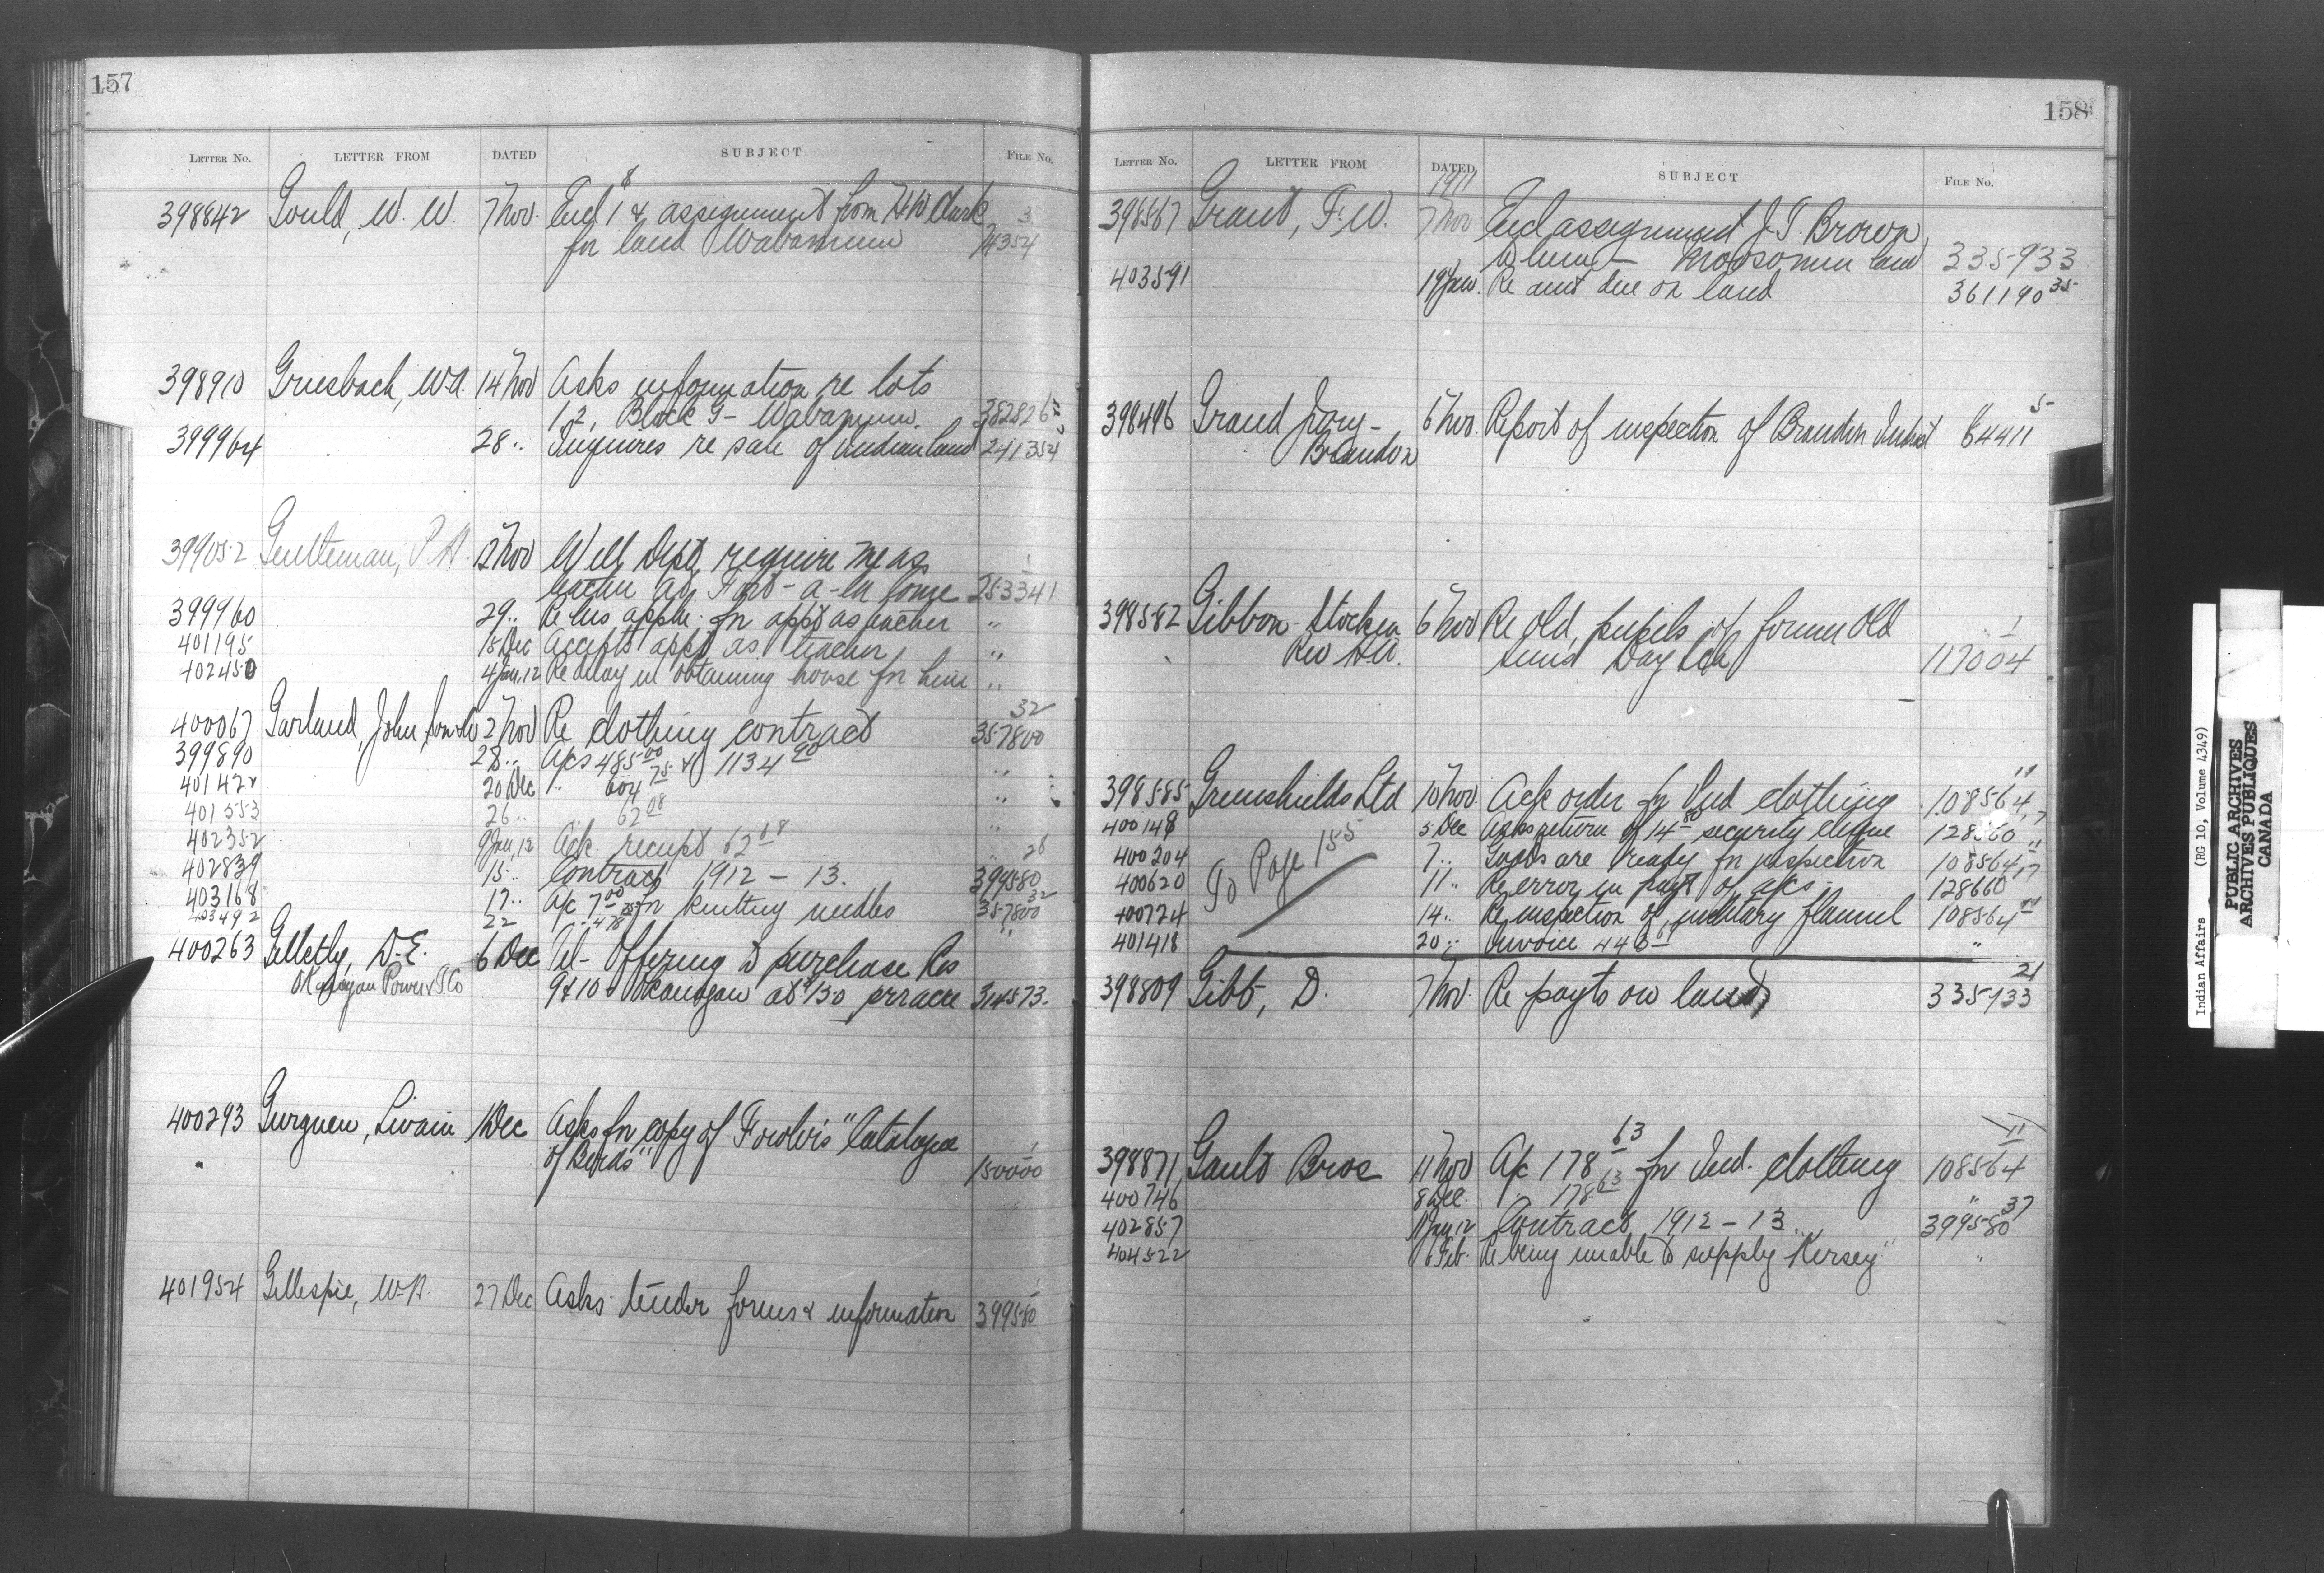 157
LETTER No. LETTER FROM DATED SUBJECT. FILE No.
398842 Gould, W. W. 7 Nov. Encl 1 & assignment from H W Clark 3
for land Wabamun 74354
398910 Griesbach, W.A. 14 Nov Asks information re lots
1.2, Block G - Wabamun. 382826
399964 28 " Inquires re sale of Indian land 241354
399052 Gentleman, P.A. 12 Nov Will Dept require me as 1
teacher at Fort-a-la Corne 253341
399960 29 " Re his appln. for appt as teacher "
401195 18 Dec Accepts appt as teacher "
402450 4 Jan, 12 Re delay in obtaining house for him "
400067 Garland, John Son & Co 2 Nov Re clothing contract 32 357800
399890 28 " A/cs 485 00 & 1134 90 "
401422 20 Dec " 604 75 "
401553 26 " 62 08 "
402352 9 Jan, 12 Ack receipt 62 08 "
402839 15 " Contract 1912 - 13. 28 399580
403168 17 " A/c 7 00 for knitting needles 32 357800
403492 22 A/c 478 "
400263 Gelletly, D.E. 6 Dec Tel - Offering to purchase Res
Okanagan Power & Co 9 & 10 Okanogan at $150 per acre 314573.
400293 Gurguen, Livain 1 Dec Asks for copy of Fowler's "Catalogue
of Birds" 150000
401954 Gillespie, W.A. 27 Dec Asks tender forms & information 399580
158
LETTER No. LETTER FROM DATED SUBJECT FILE No.
1911
398567 Grant, F.W. 7 Nov Encl assignment J.T. Brown
to him - Moosomin land 335933
403591 19 Jan. Re amt due on land 361190 35
398496 Grand Jury - 6 Nov. Report of inspection of Brandon Indust 64411 5
Brandon
398582 Gibbon-Stocken 6 Nov Re Old pupils of former Old 1
Rev H.W. Suns Day Sch 117004
398585 Greenshields Ltd 10 Nov Ack order for Ind clothing 108564, 11
400148 5 Dec Asks return of 14 80 security cheque 128660 7
400204 7 " Goods are ready for inspection 108564 11
400620 11 " Re error in payt of a/cs 128660 17
400724 14 " Re inspection of military flannel 108564 11
401418 20 " Invoice 446 "
To Page 155
398809 Gibb, D. 7 Nov. Re payts on land 335133 21
398871 Gault Bros 11 Nov A/c 178 63 for Ind. clothing 11 108564
400746 8 Dec. " 178 63 "
402857 11 Jan, 12 Contract 1912 - 13. 399580 37
404522 6 Feb. Re being unable to supply "Kersey" "
Indian Affairs (RG 10, Volume 4349)
PUBLIC ARCHIVES
ARCHIVES PUBLIQUES
CANADA